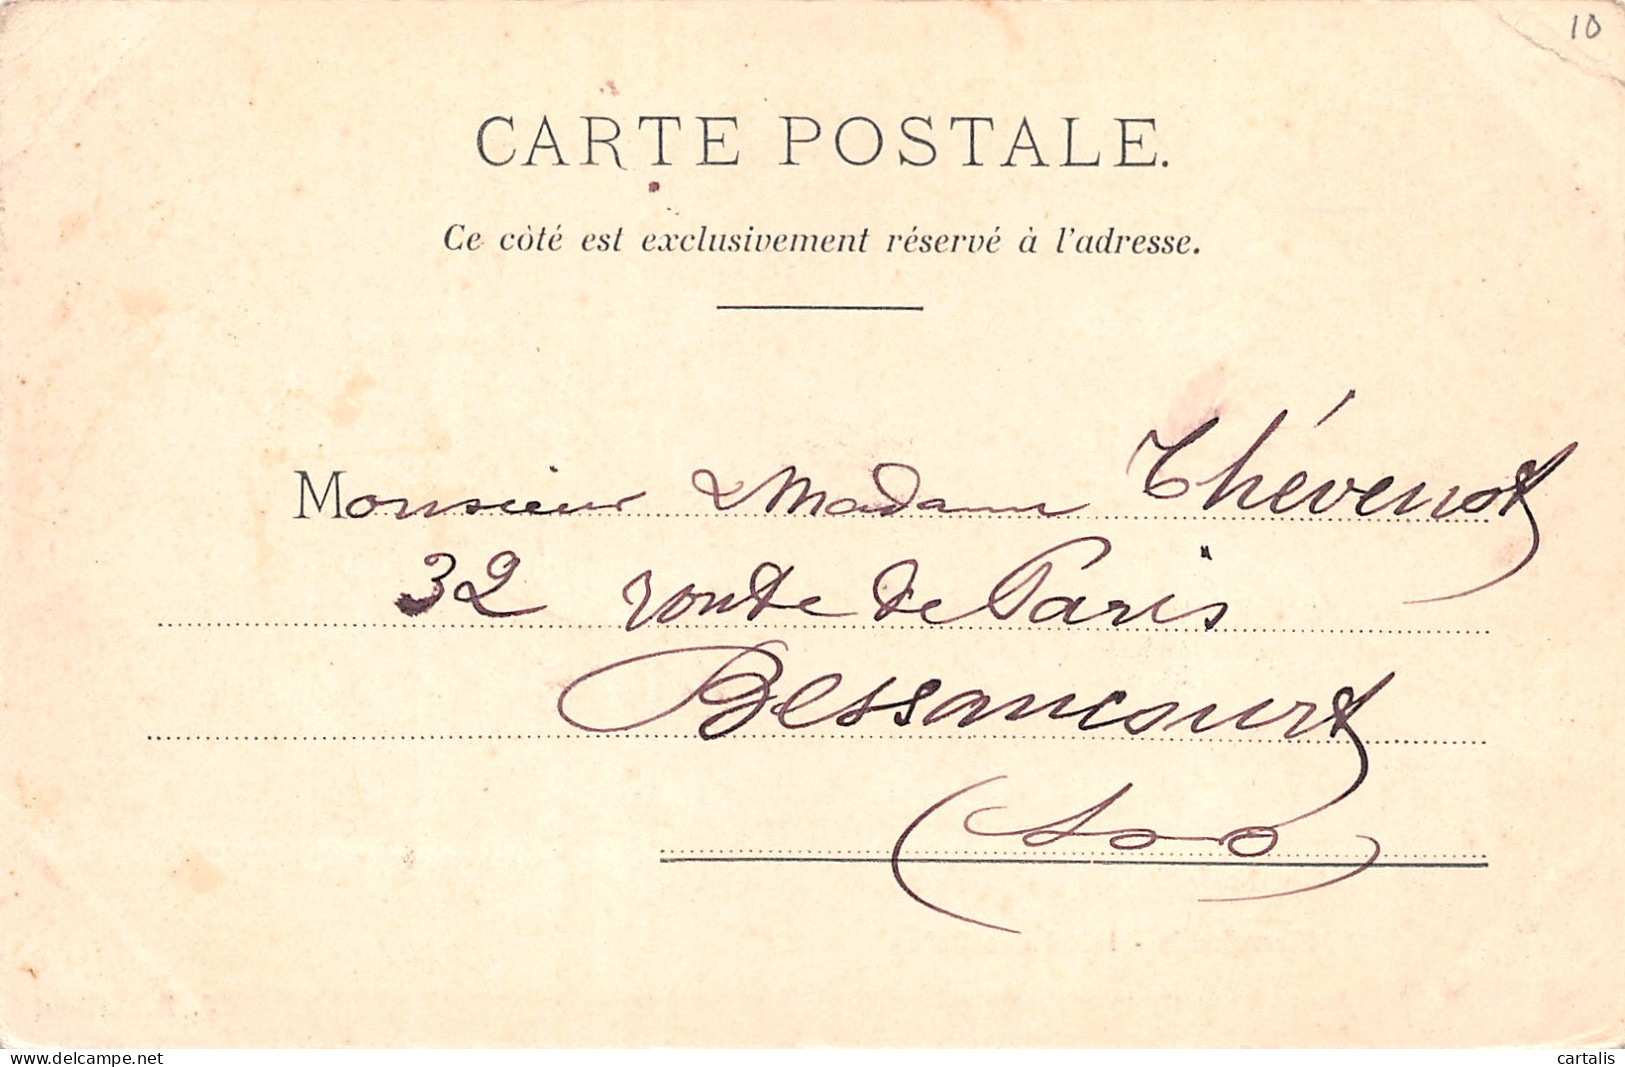 10
CARTE POSTALE.
Ce côté est exclusivement réservé à l'adresse.
Monsieur & Madame Thévenot
32 route de Paris
Bessancourt
(S & O)
www.delcampe.net
cartalis